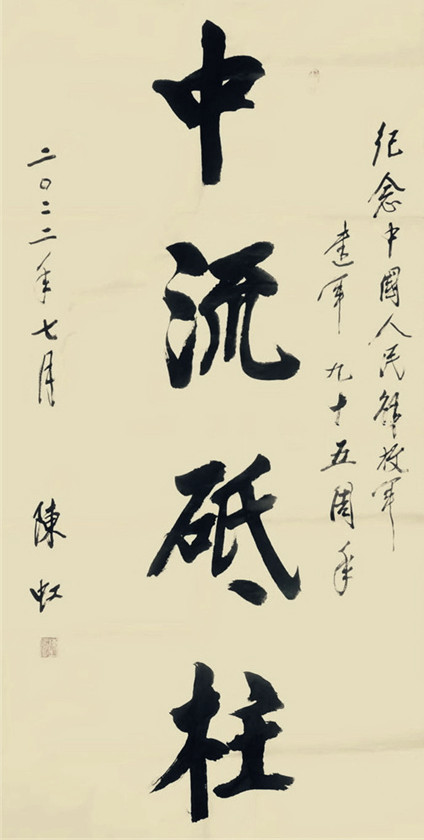 紀念中國人民解放军
建军九十五周年
中流砥柱
二〇二二年七月
陳虹